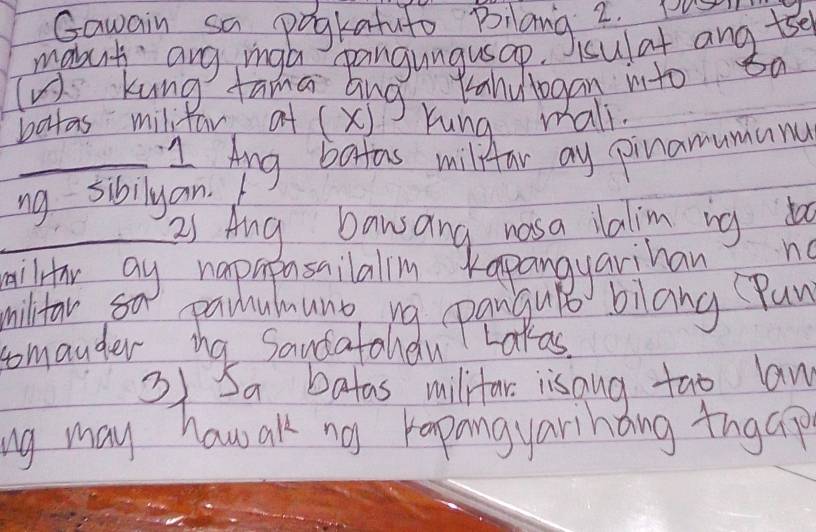 Gawain sa pagkatuto Bilang 2.
mabuti ang mga pangungusap. isulat ang tse
(✓) kung tama ang kahulogan nito sa
batas militar at (X) kung mali.
1 Ang batas militar ay pinamumunu
ng sibilyan.
2) Ang bansang nasa ilalim ng ba
militar ay napapasailalim kapangyarihan na
militar sa pamumuno ng pangulo bilang (Pun
komander ng Sandatahan Lakas.
3) Sa batas militar iisang tao lan
ng may hawak ng kapangyarihang tngap